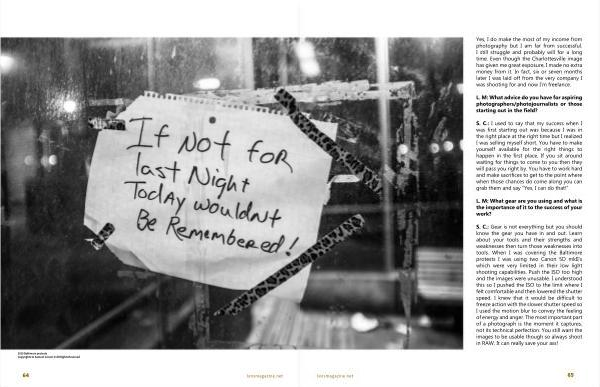 If Not for
last Night
Today wouldnt
Be Remembered!
2015 Baltimore protests
64
lensmagazine.net
Yes, I do make the most of my income from
photography but I am far from successful.
I still struggle and probably will for a long
time. Even though the Charlottesville image
has given me great exposure. I made no extra
money from it. In fact, six or seven months
later I was laid off from the very company I
was shooting for and now I'm freelance.
L. M: What advice do you have for aspiring
photographers/photojournalists or those
starting out in the field?
S. C.: I used to say that my success when I
was first starting out was because I was in
the right place at the right time but I realized
I was selling myself short. You have to make
yourself available for the right things to
happen in the first place. If you sit around
waiting for things to come to you then they
will pass you right by. You have to work hard
and make sacrifices to get to the point where
when those chances do come along you can
grab them and say "Yes, I can do that!"
L. M: What gear are you using and what is
the importance of it to the success of your
work?
S. C.: Gear is not everything but you should
know the gear you have in and out. Learn
about your tools and their strengths and
weaknesses then turn those weaknesses into
tools. When I was covering the Baltimore
protests I was using two Canon 5D mkII's
which were very limited in their low light
shooting capabilities. Push the ISO too high
and the images were unusable. I understood
this so I pushed the ISO to the limit where I
felt comfortable and then lowered the shutter
speed. I knew that it would be difficult to
freeze action with the slower shutter speed so
I used the motion blur to convey the feeling
of energy and anger. The most important part
of a photograph is the moment it captures,
not its technical perfection. You still want the
images to be usable though so always shoot
in RAW. It can really save your ass!
lensmagazine.net
65